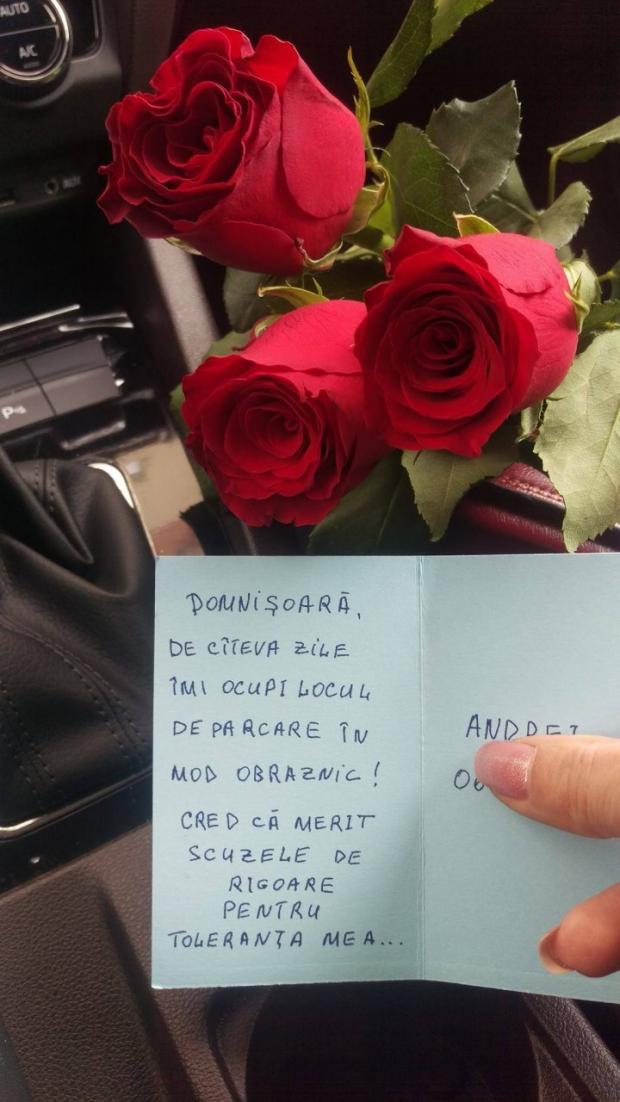 AUTO
A/C
AUX
P
DOMNIȘOARĂ,
DE CÎTEVA ZILE
ÎMI OCUPI LOCUL
DE PARCARE ÎN
MOD OBRAZNIC!
CRED CĂ MERIT
SCUZELE DE
RIGOARE
PENTRU
TOLERANȚA MEA...
ANDREI